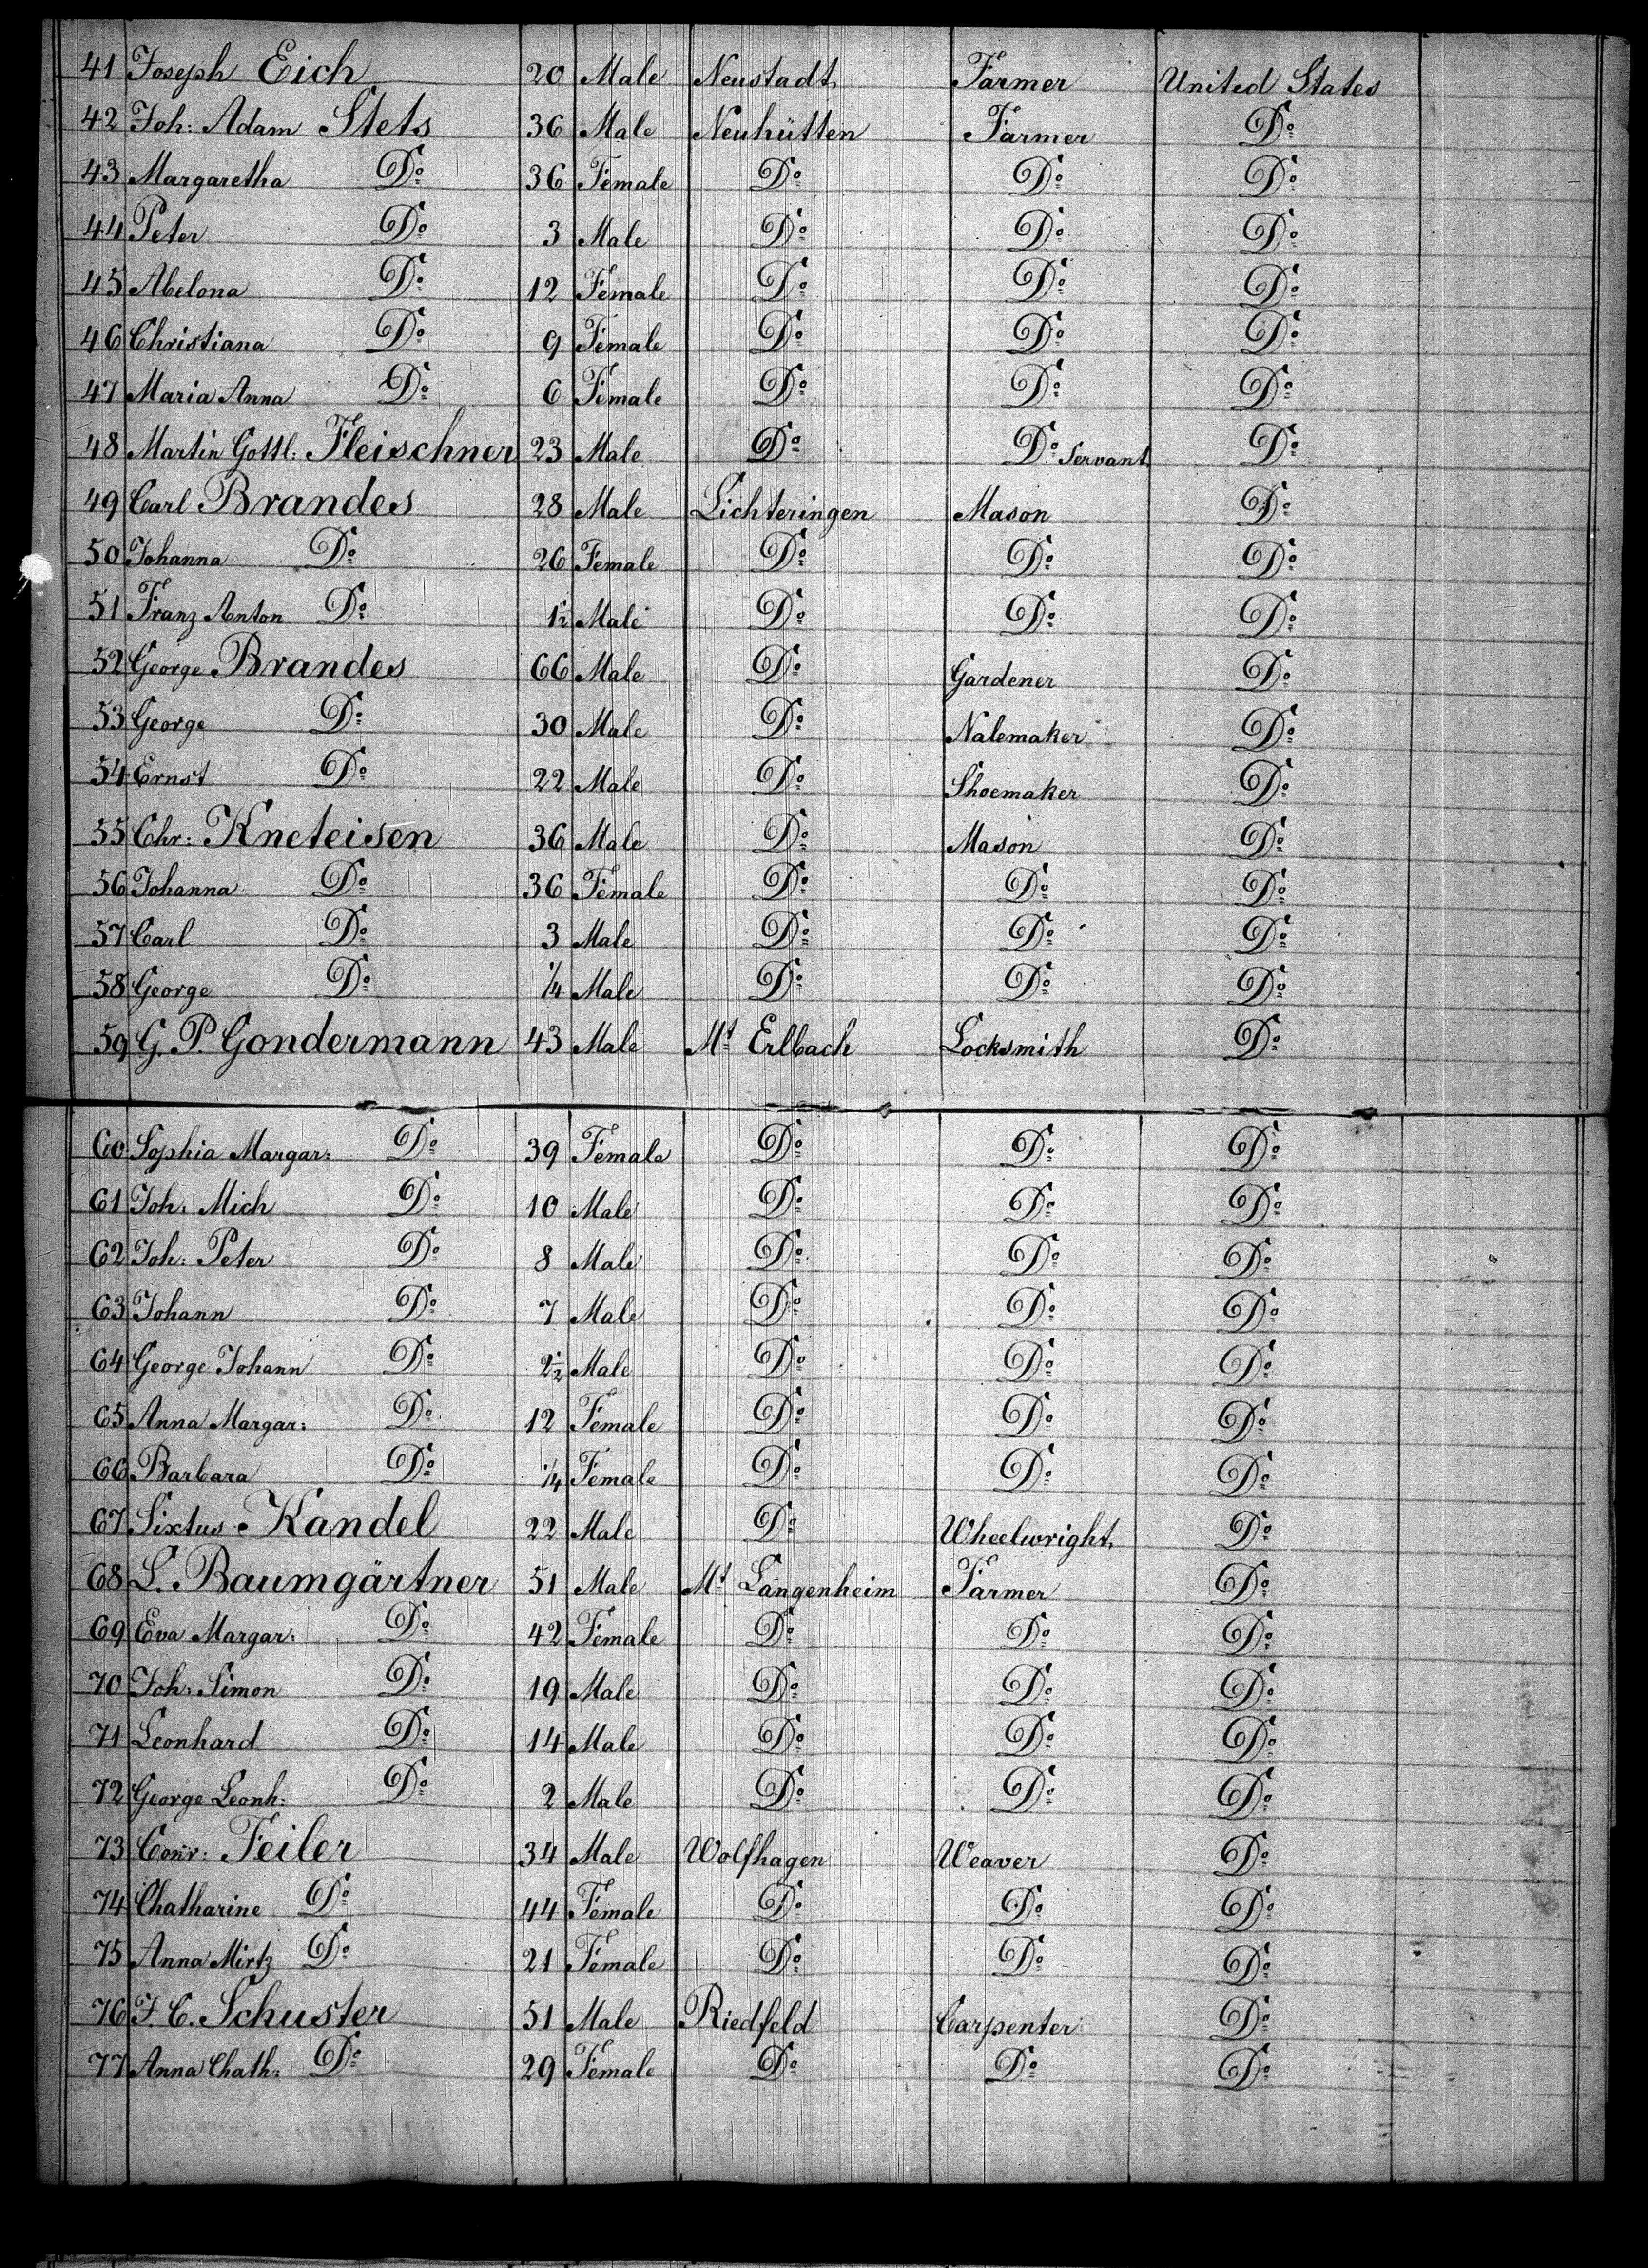 41 Joseph Eich 20 Male Neustadt Farmer United States
42 Joh: Adam Stets 36 Male Neuhütten Farmer Do
43 Margaretha Do 36 Female Do Do Do
44 Peter Do 3 Male Do Do Do
45 Abelona Do 12 Female Do Do Do
46 Christiana Do 9 Female Do Do Do
47 Maria Anna Do 6 Female Do Do Do
48 Martin Gottl: Fleischner 23 Male Do Do Servant Do
49 Carl Brandes 28 Male Lichteringen Mason Do
50 Johanna Do 26 Female Do Do Do
51 Franz Anton Do 1½ Male Do Do Do
52 George Brandes 66 Male Do Gardener Do
53 George Do 30 Male Do Nalemaker Do
54 Ernst Do 22 Male Do Shoemaker Do
55 Chr: Kneteisen 36 Male Do Mason Do
56 Johanna Do 36 Female Do Do Do
57 Carl Do 3 Male Do Do Do
58 George Do ¼ Male Do Do Do
59 G. P. Gondermann 43 Male Mt Erlbach Locksmith Do
60 Sophia Margar: Do 39 Female Do Do Do
61 Joh: Mich Do 10 Male Do Do Do
62 Joh: Peter Do 8 Male Do Do Do
63 Johann Do 7 Male Do Do Do
64 George Johann Do 2½ Male Do Do Do
65 Anna Margar: Do 12 Female Do Do Do
66 Barbara Do ¼ Female Do Do Do
67 Sixtus Kandel 22 Male Do Wheelwright Do
68 L. Baumgärtner 51 Male Mt Langenheim Farmer Do
69 Eva Margar: Do 42 Female Do Do Do
70 Joh: Simon Do 19 Male Do Do Do
71 Leonhard Do 14 Male Do Do Do
72 George Leonh: Do 2 Male Do Do Do
73 Conr: Feiler 34 Male Wolfhagen Weaver Do
74 Chatharine Do 44 Female Do Do Do
75 Anna Mirtz Do 21 Female Do Do Do
76 J. C. Schuster 51 Male Riedfeld Carpenter Do
77 Anna Chath: Do 29 Female Do Do Do